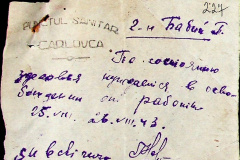 227
PUNCTUL SANITAR
CARLOVCA
2-м Бабий Г.
По состоянию
здоровья нуждается в осво-
бождении от работы
25.VIII. 26.VIII.43.